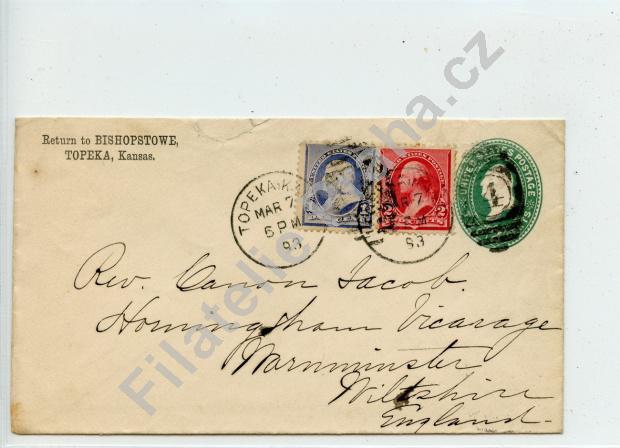 Return to BISHOPSTOWE,
TOPEKA, Kansas.
TOPEKA K
MAR 7
6 PM
93
2
UNITED STATES POSTAGE
1
Rev. Canon Jacob.
Homingham Vicarage
Warnminster
Wiltshire
England
Filatelie
ha.cz